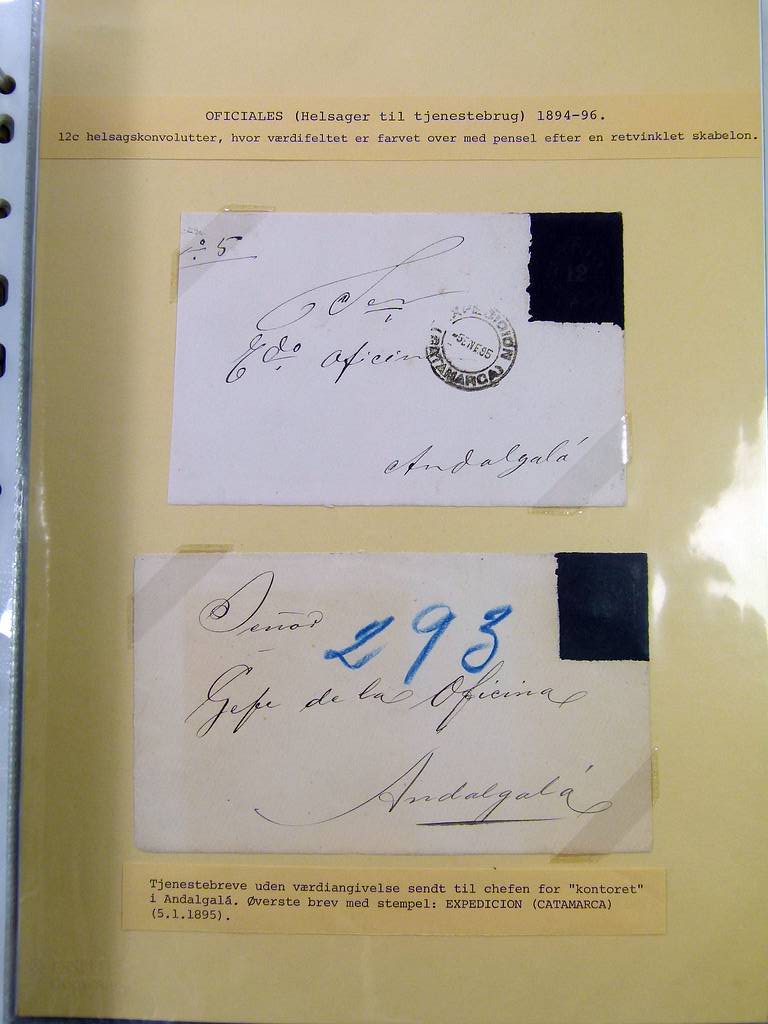 OFICIALES (Helsager til tjenestebrug) 1894-96.
12c helsagskonvolutter, hvor værdifeltet er farvet over med pensel efter en retvinklet skabelon.
Nº 5
Señ
12
EXPEDICION
-5 ENE 95
(CATAMARCA)
Edo oficin
Andalgalá
Señor
293
Gefe de la Oficina
Andalgalá
Tjenestebreve uden værdiangivelse sendt til chefen for "kontoret"
i Andalgalá. Øverste brev med stempel: EXPEDICION (CATAMARCA)
(5.1.1895).